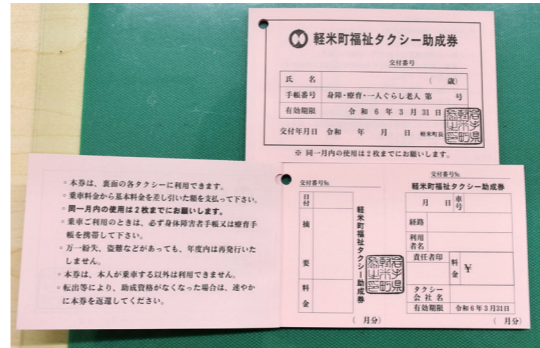 軽米町福祉タクシー助成券
交付番号
氏 名 ( 歳)
手帳番号 身障・療育・一人ぐらし老人 第 号
有効期限 令和 6 年 3 月 31 日
交付年月日 令和 年 月 日 軽米町長
※ 同一月内の使用は2枚までにお願いします。
・本券は、裏面の各タクシーに利用できます。
・乗車料金から基本料金を差し引いた額を支払って下さい。
・同一月内の使用は2枚までにお願いします。
・乗車ご利用のときは、必ず身体障害者手帳又は療育手
帳を携帯して下さい。
・万一紛失、盗難などがあっても、年度内は再発行いた
しません。
・本券は、本人が乗車する以外は利用できません。
・転出等により、助成資格がなくなった場合は、速やか
に本券を返還してください。
交付番号№
日付
摘要
料金
軽米町福祉タクシー助成券
( 月分)
交付番号№
軽米町福祉タクシー助成券
月 日 車号
経路
利用者名
責任者印 料金 ¥
タクシー会社名
有効期限 令和6年3月31日
( 月分)